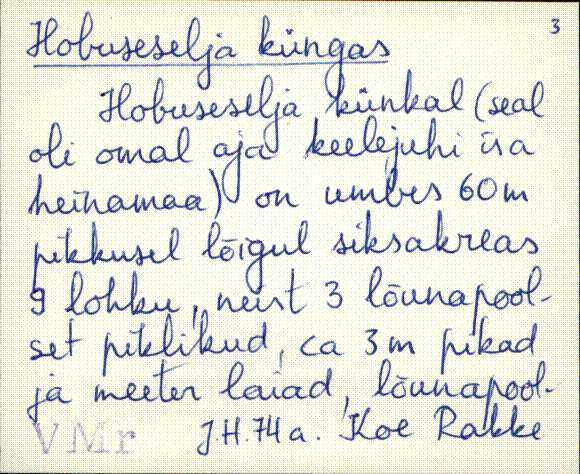 3
Hobuseselja küngas
Hobuseselja künkal (seal
oli omal aja keelejuhi isa
heinamaa) on umbes 60m
pikkusel lõigul siksakreas
9 lohku, neist 3 lõunapool-
set piklikud, ca 3m pikad
ja meeter laiad, lõunapool-
VMr J.H. 74 a. Koe Rakke